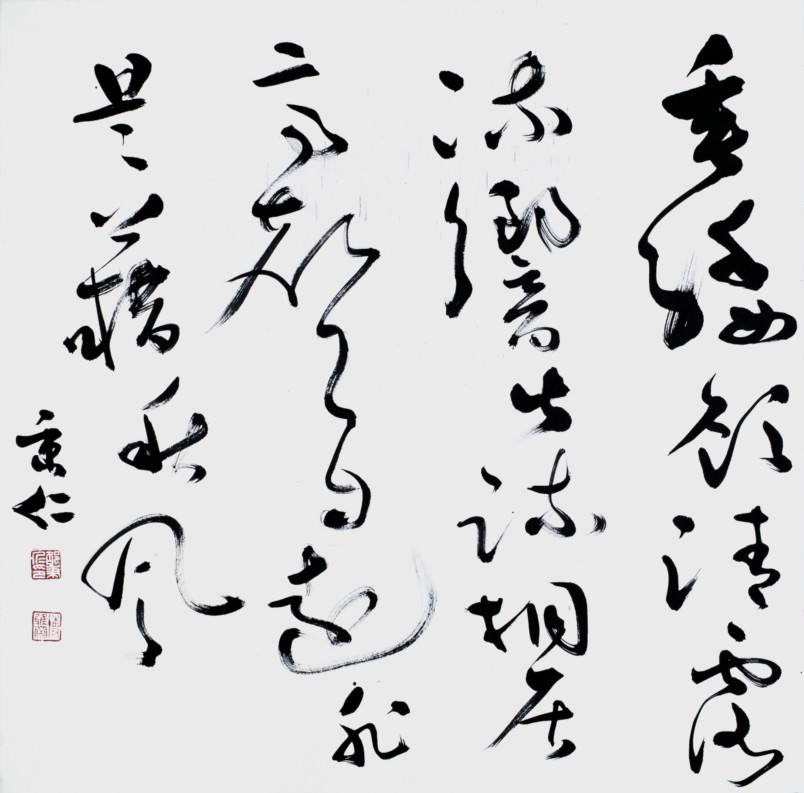 垂緌飲清露
流響出疏桐居
高聲自遠非
是藉秋風
仁